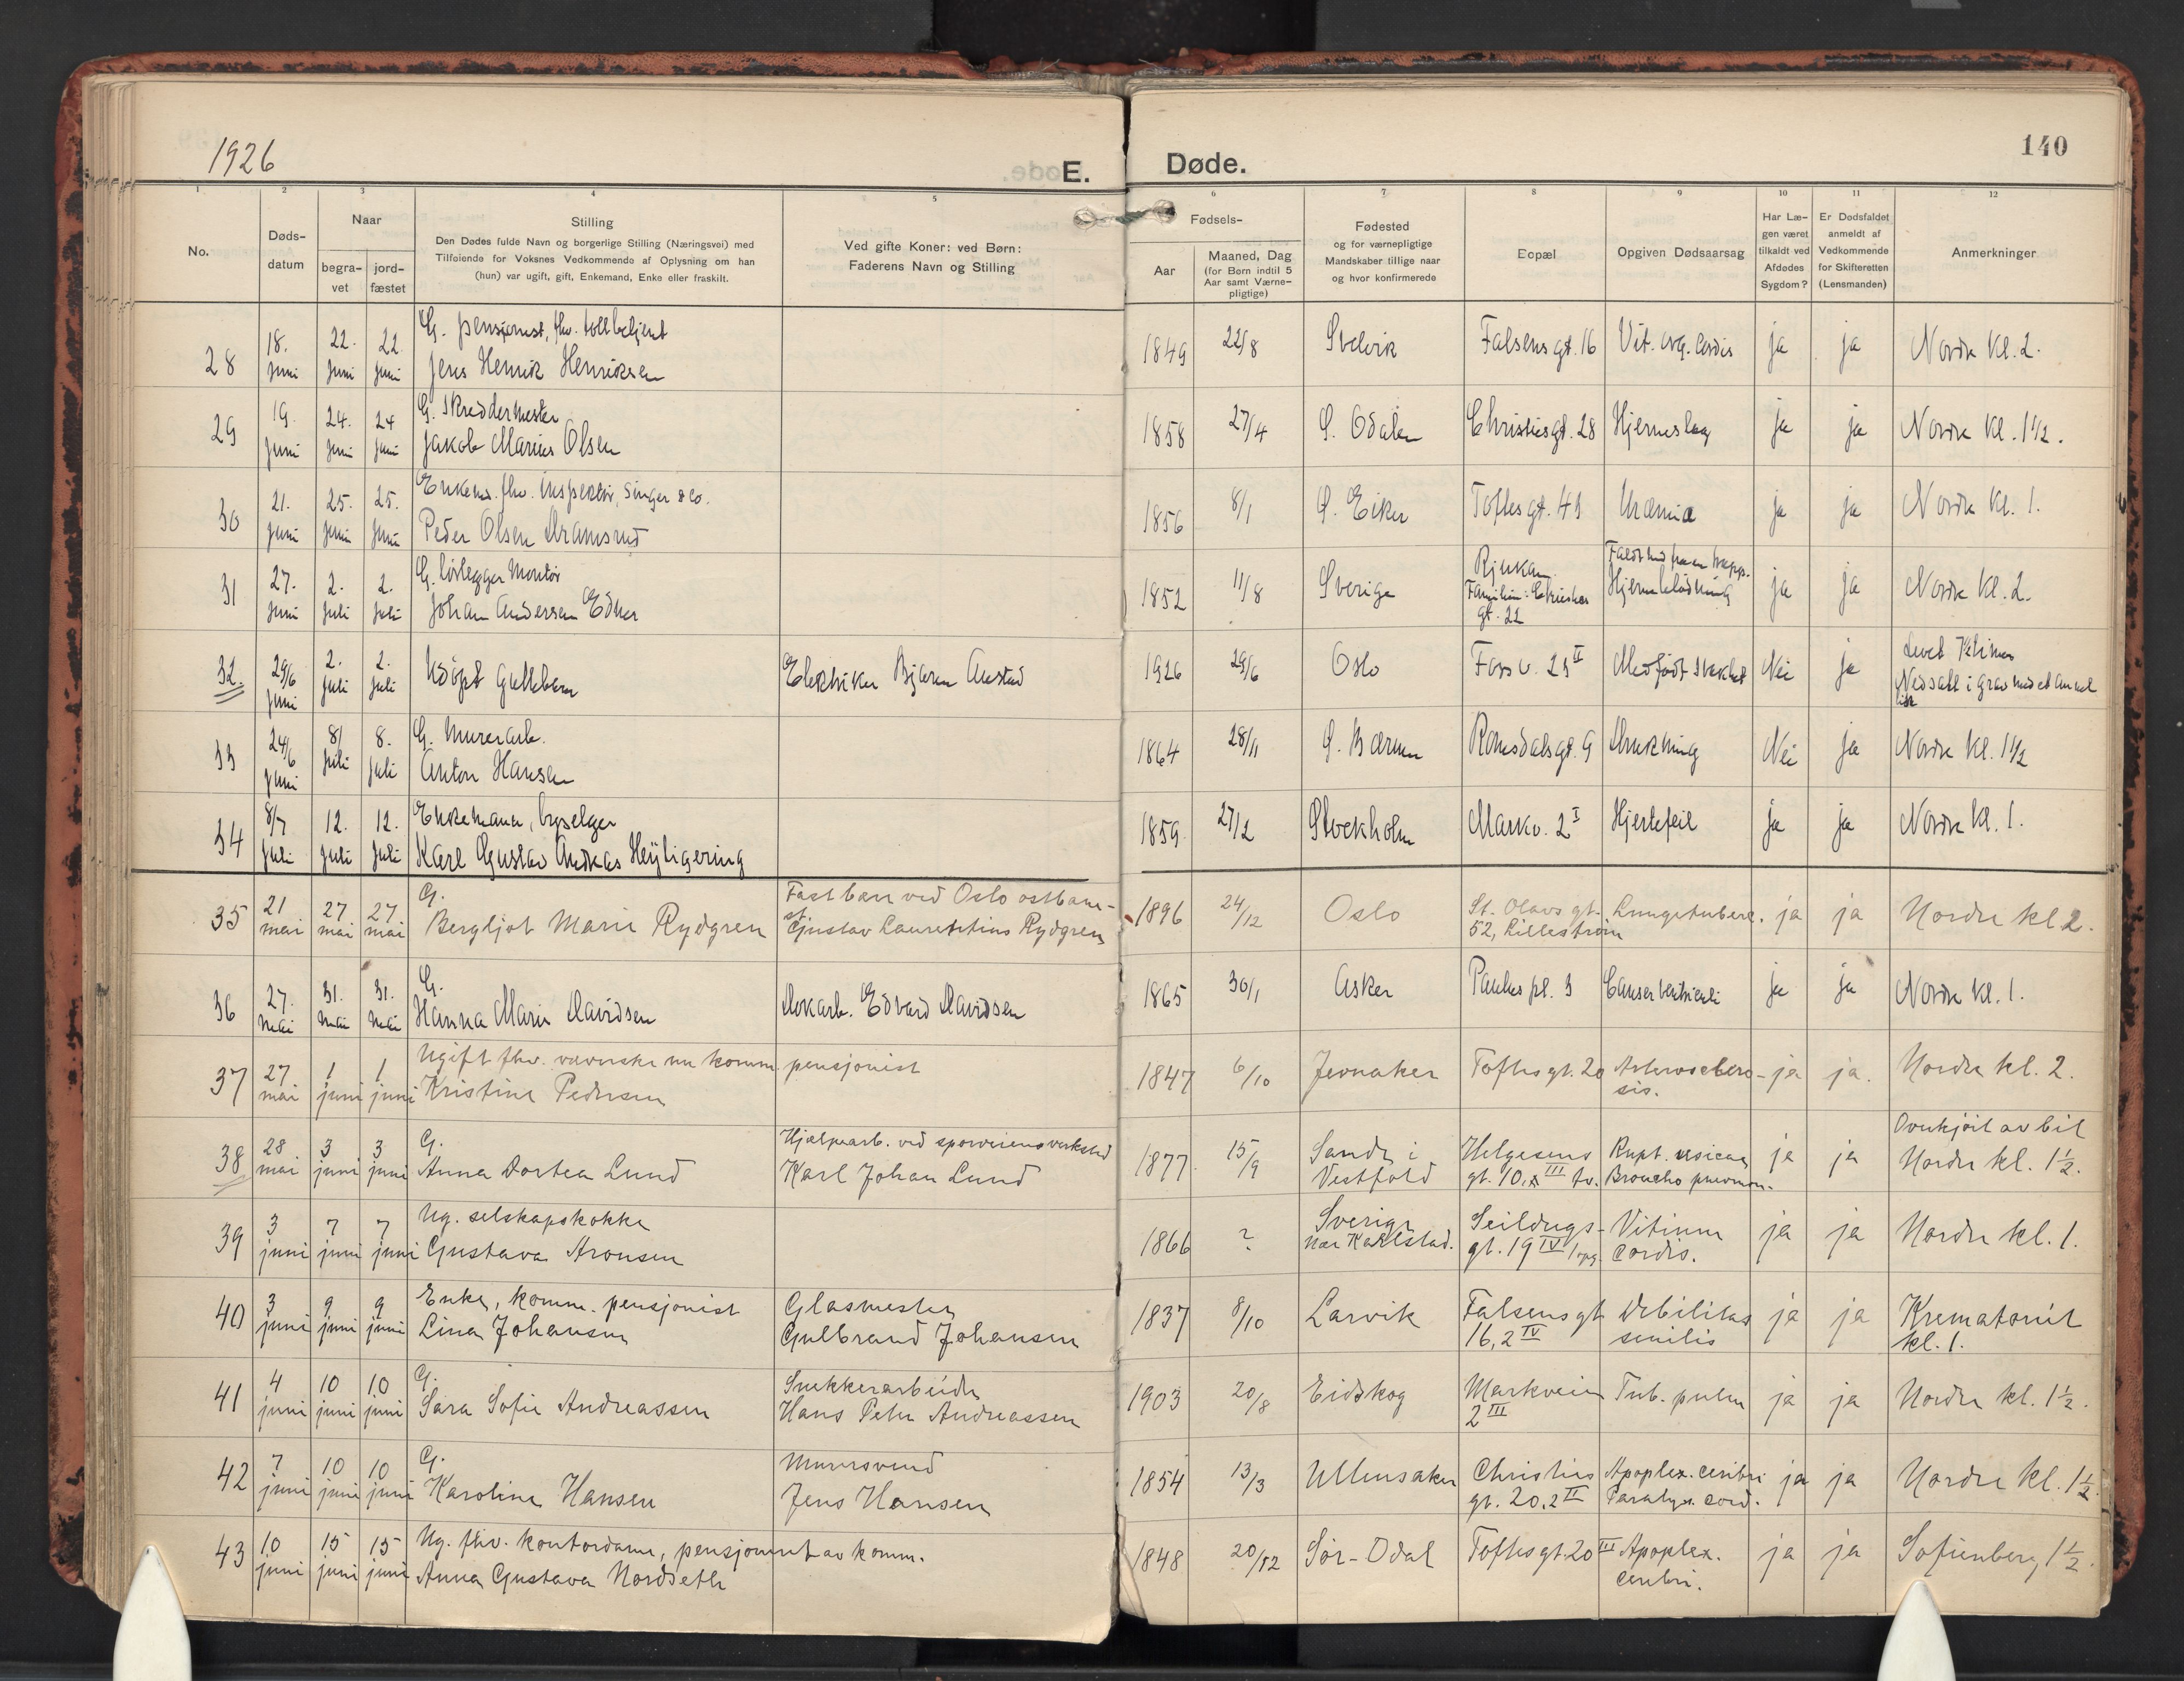 1926
E. Døde.
140
1 2 3 4 5 6 7 8 9 10 11 12
No.
Døds-
datum
Naar
begra-
vet
jord-
fæstet
Stilling
Den Dødes fulde Navn og borgerlige Stilling (Næringsvei) med
Tilføiende for Voksnes Vedkommende af Oplysning om han
(hun) var ugift, gift, Enkemand, Enke eller fraskilt.
Ved gifte Koner: ved Børn:
Faderens Navn og Stilling
Fødsels-
Aar
Maaned, Dag
(for Børn indtil 5
Aar samt Værne-
pligtige)
Fødested
og for værnepligtige
Mandskaber tillige naar
og hvor konfirmerede
Bopæl
Opgiven Dødsaarsag
Har Læ-
gen været
tilkaldt ved
Afdødes
Sygdom?
Er Dødsfaldet
anmeldt af
Vedkommende
for Skifteretten
(Lensmanden)
Anmerkninger
28 18. juni 22. juni 22. juni G. pensjonist, fhv. tollbetjent
Jens Henrik Henriksen
1849 22/8 Svelvik Falsens gt. 16 Vit. org. cordis ja ja Nordre kl. 2.
29 19. juni 24. juni 24 juni G. Skreddermester
Jakob Marius Olsen
1858 27/4 S. Odalen Christiesgt. 28 Hjerneslag ja ja Nordre kl. 1½.
30 21. juni 25. juni 25. juni Enkem. fhv. inspektør, Singer & Co.
Peder Olsen Aramsrud
1856 8/1 Ø. Eiker Toftes gt. 43 Uræmia ja ja Nordre kl. 1.
31 27. juni 2. juli 2. juli G. rørlegger montør
Johan Andersen Edner
1852 11/8 Sverige Rjukan.
Familien: Christies
gt. 22
Faldt ned fra en trapp.
Hjerneblødning
ja ja Nordre kl. 2.
32. 29/6 juni 2. juli 2. juli Udøpt guttebarn
Elektriker Bjarne Austad
1926 29/6 Oslo Foss v. 23 II Medfødt svakhet Nei ja Levet 7 timer
Nedsatt i grav med et annet
lik
33 24/6 juni 8/ juli 8. juli G. murerarb.
Anton Hansen
1864 28/11 Ø. Bærum Romsdalsgt. 9 Drukning Nei ja Nordre kl. 1½
34 8/7 juli 12. juli 12. juli Enkemann, lysselger
Karl Gustav Andreas Heyligering
1859 27/12 Stockholm Markv. 2 I Hjertefeil ja ja Nordre kl. 1.
35 21 mai 27 mai 27 mai G.
Bergljot Marie Rydgren
Fast bær. ved Oslo østbane-
st. Gustav Laurentius Rydgren
1896 24/12 Oslo St. Olavs gt.
52, Lillestrøm
Lungetuberc. ja ja Nordre kl 2.
36 27. mai 31. mai 31. mai G.
Hanna Marie Davidsen
Dokarb. Edvard Davidsen
1865 30/1 Asker Paulus pl. 3 Cancer ventriculi ja ja Nordre kl. 1.
37 27 mai 1 juni 1 juni Ugift fhv. væverske nu komm. pensjonist
Kristine Pedersen
1847 6/10 Jevnaker Toftes gt. 20 Arterosclero-
sis.
ja ja. Nordre kl. 2.
38 28 mai 3 juni 3 juni G.
Anna Dortea Lund
Hjælpearb. ved sporveiens verksted
Karl Johan Lund
1877 15/9 Sande i
Vestfold
Helgesens
gt. 10, III tv.
Rupt. vesicae
Broncho pneumon.
ja ja Overkjørt av bil
Nordre kl. 1½.
39 3 juni 7 juni 7 juni Ug. selskapskokke
Gustava Aronsen
1866 ? Sverige
nær Karlstad.
Seildugs-
gt. 19 IV opg.
Vitium
cordis.
ja ja Nordre kl. 1.
40 3 juni 9 juni 9 juni Enke, komm. pensjonist
Lina Johansen
Glasmester
Gulbrand Johansen
1837 8/10 Larvik Falsens gt
16, 2 IV
Debilitas
senilis
ja ja Krematoriet
kl. 1.
41 4 juni 10 juni 10 juni G.
Sara Sofie Andreassen
Snekkerarbeider
Hans Peter Andreassen
1903 20/8 Eidskog Markveien
2 III
Tub. pulm ja ja Nordre kl. 1½.
42 7 juni 10 juni 10 juni G.
Karoline Hansen
Murersvend
Jens Hansen
1854 13/3 Ullensaker Christies
gt. 20, 2 II
Apoplex. cerebri
Paralys. cord.
ja ja Nordre kl. 1½.
43 10 juni 15 juni 15 juni Ug. fhv. kontordame, pensjonert av komm.
Anna Gustava Nordseth
1848 20/12 Sør-Odal Toftes gt. 20 III Apoplex.
cerebri.
ja ja Sofienberg, 1½.